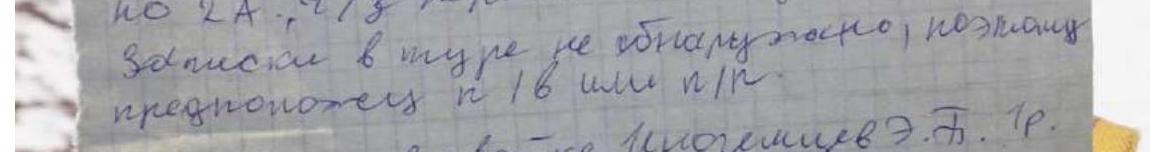 по 2А
Записки в туре не обнаружено, поэтому
предположен п/в или п/п.
Иноземцев Э.П. 1р.